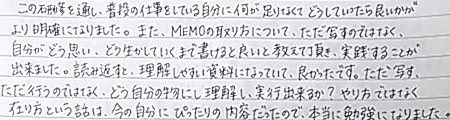 この研修を通し、普段の仕事をしている自分に何が足りなくてどうしていたら良いかが
より明確になりました。また、MEMOの取り方について、ただ写すのではなく、
自分がどう思い、どう生かしていくまで書けると良いと教えて頂き、実践することが
出来ました。読み返すと、理解しやすい資料になっていて、良かったです。ただ写す、
ただ行うのではなく、どう自分の物にし理解し、実行出来るか?やり方ではなく
在り方という話は、今の自分にぴったりの内容だったので、本当に勉強になりました。